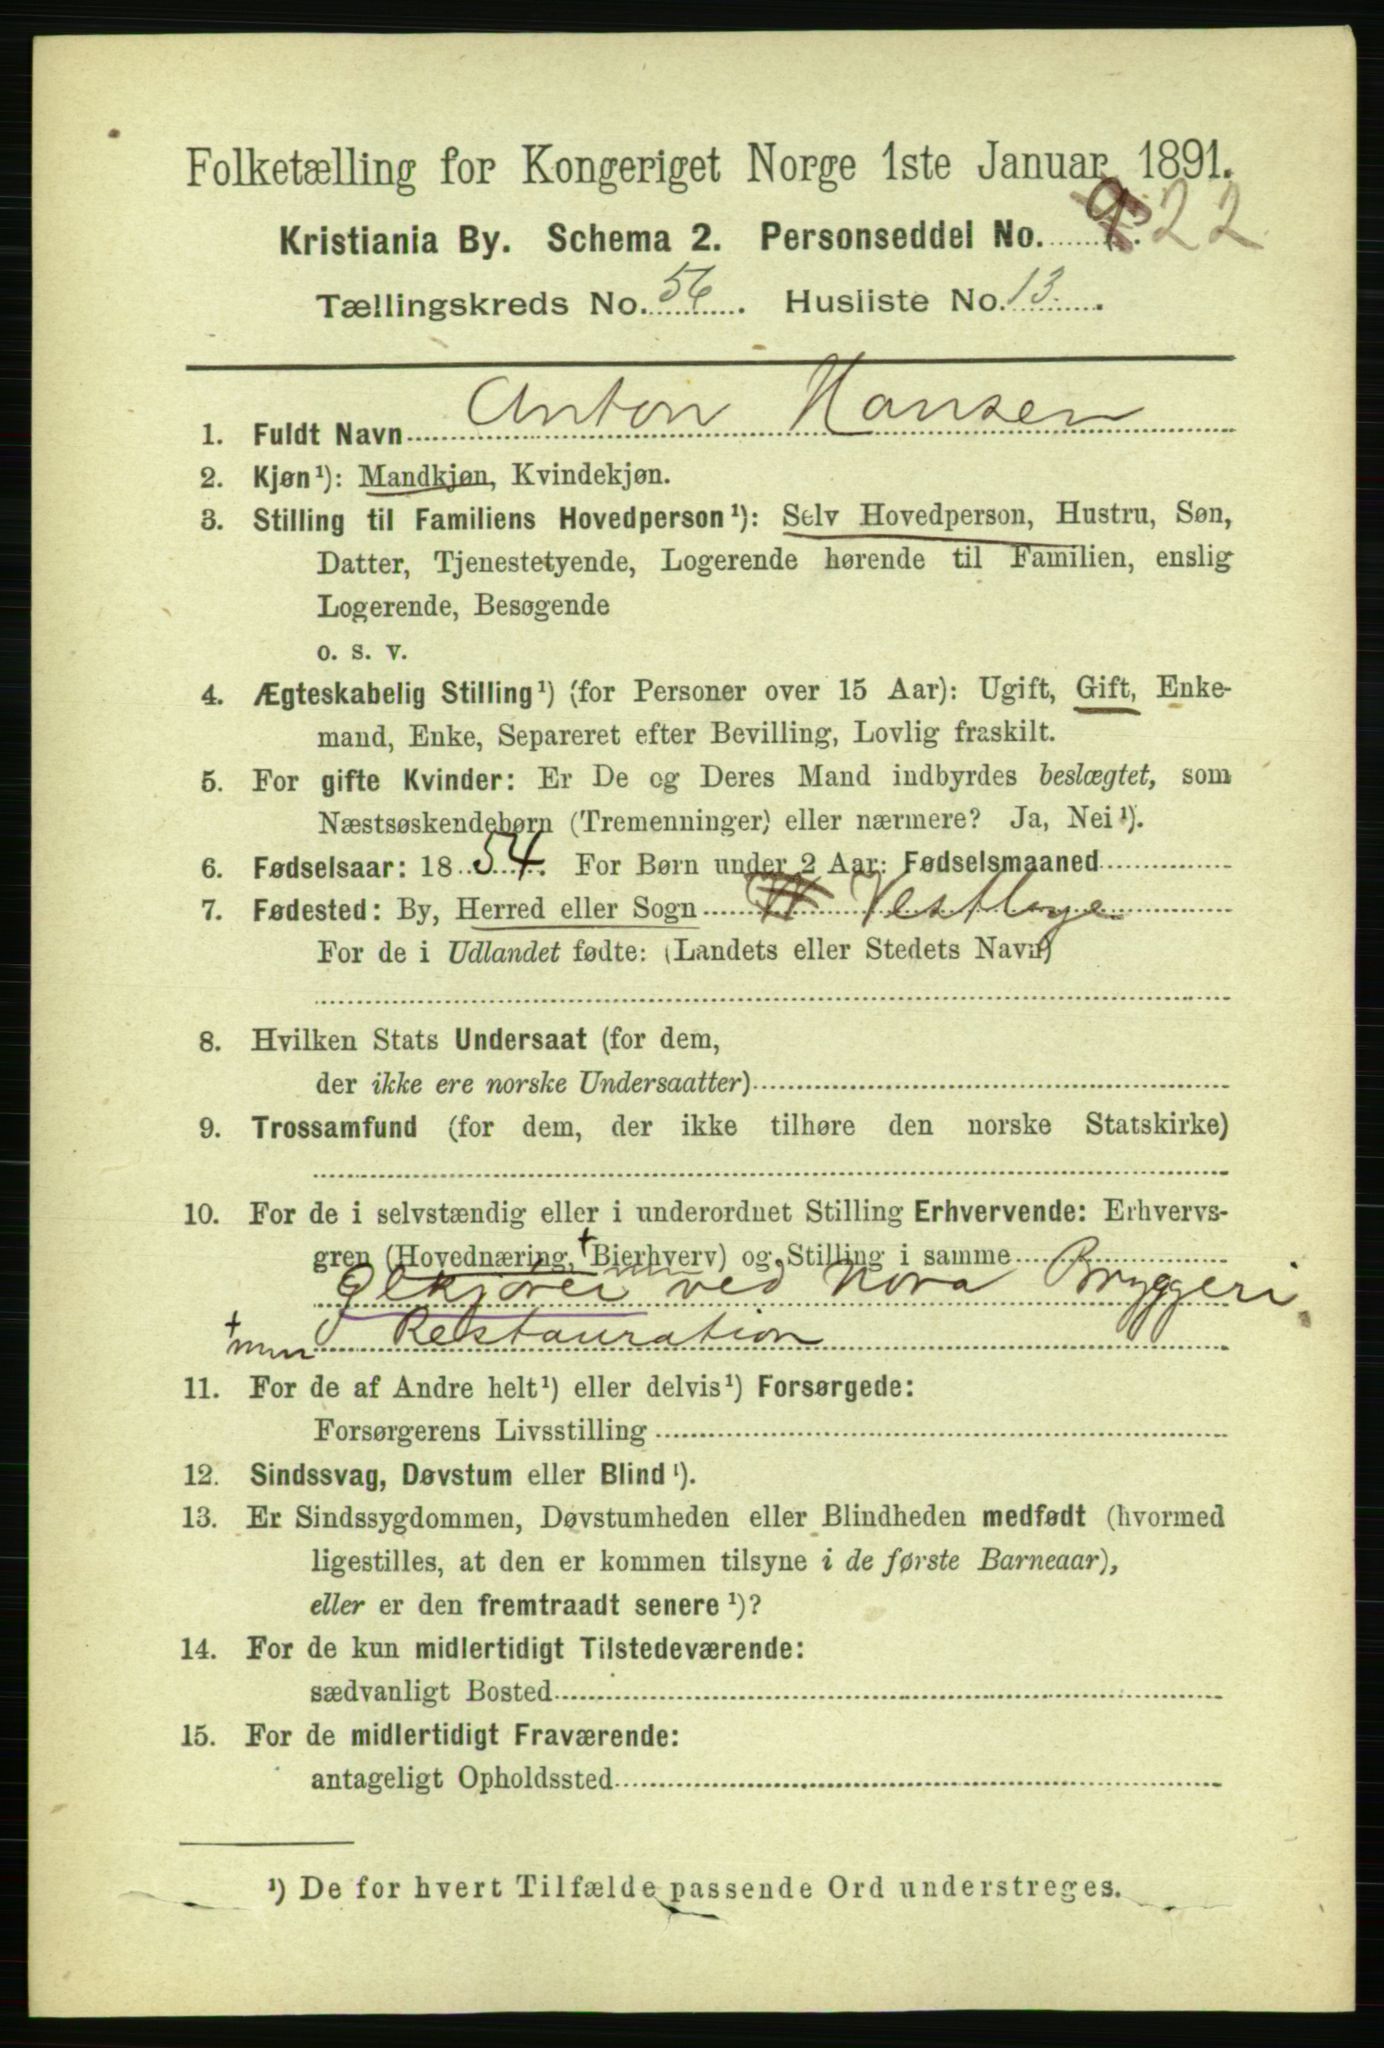 Folketælling for Kongeriget Norge 1ste Januar 1891.
Kristiania By. Schema 2. Personseddel No. 22
Tællingskreds No. 56. Husliste No. 13.
1. Fuldt Navn Anton Hansen
2. Kjøn¹): Mandkjøn, Kvindekjøn.
3. Stilling til Familiens Hovedperson¹): Selv Hovedperson, Hustru, Søn,
Datter, Tjenestetyende, Logerende hørende til Familien, enslig
Logerende, Besøgende
o. s. v.
4. Ægteskabelig Stilling¹) (for Personer over 15 Aar): Ugift, Gift, Enke-
mand, Enke, Separeret efter Bevilling, Lovlig fraskilt.
5. For gifte Kvinder: Er De og Deres Mand indbyrdes beslægtet, som
Næstsøskendebørn (Tremenninger) eller nærmere? Ja, Nei¹).
6. Fødselsaar: 1854. For Børn under 2 Aar: Fødselsmaaned
7. Fødested: By, Herred eller Sogn
For de i Udlandet fødte: (Landets eller Stedets Navn)
8. Hvilken Stats Undersaat (for dem,
der ikke ere norske Undersaatter)
9. Trossamfund (for dem, der ikke tilhøre den norske Statskirke)
10. For de i selvstændig eller i underordnet Stilling Erhvervende: Erhvervs-
gren (Hovednæring, † Bierhverv) og Stilling i samme
Ølkjører ved Nora Bryggeri
† Restauration
11. For de af Andre helt¹) eller delvis¹) Forsørgede:
Forsørgerens Livsstilling
12. Sindssvag, Døvstum eller Blind¹).
13. Er Sindssygdommen, Døvstumheden eller Blindheden medfødt (hvormed
ligestilles, at den er kommen tilsyne i de første Barneaar),
eller er den fremtraadt senere¹)?
14. For de kun midlertidigt Tilstedeværende:
sædvanligt Bosted
15. For de midlertidigt Fraværende:
antageligt Opholdssted
¹) De for hvert Tilfælde passende Ord understreges.